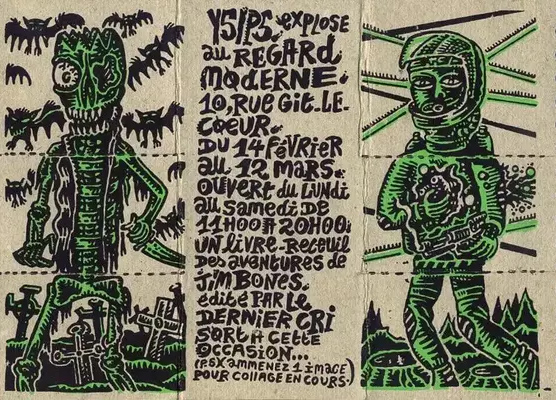 YS/PS explose
au REGARD
MODERNE.
10, RUE GIT-LE-
COEUR.
DU 14 FÉVRIER
AU 12 MARS.
OUVERT DU LUNDI
AU SAMEDI DE
11H00 A 20H00.
UN LIVRE-RECEUIL
DES AVENTURES DE
JIM BONES.
édité PAR LE
DERNIER CRI
SORT A CETTE
OCCASION...
(P.S X AMMENEZ 1 IMAGE
POUR COLLAGE EN COURS.)